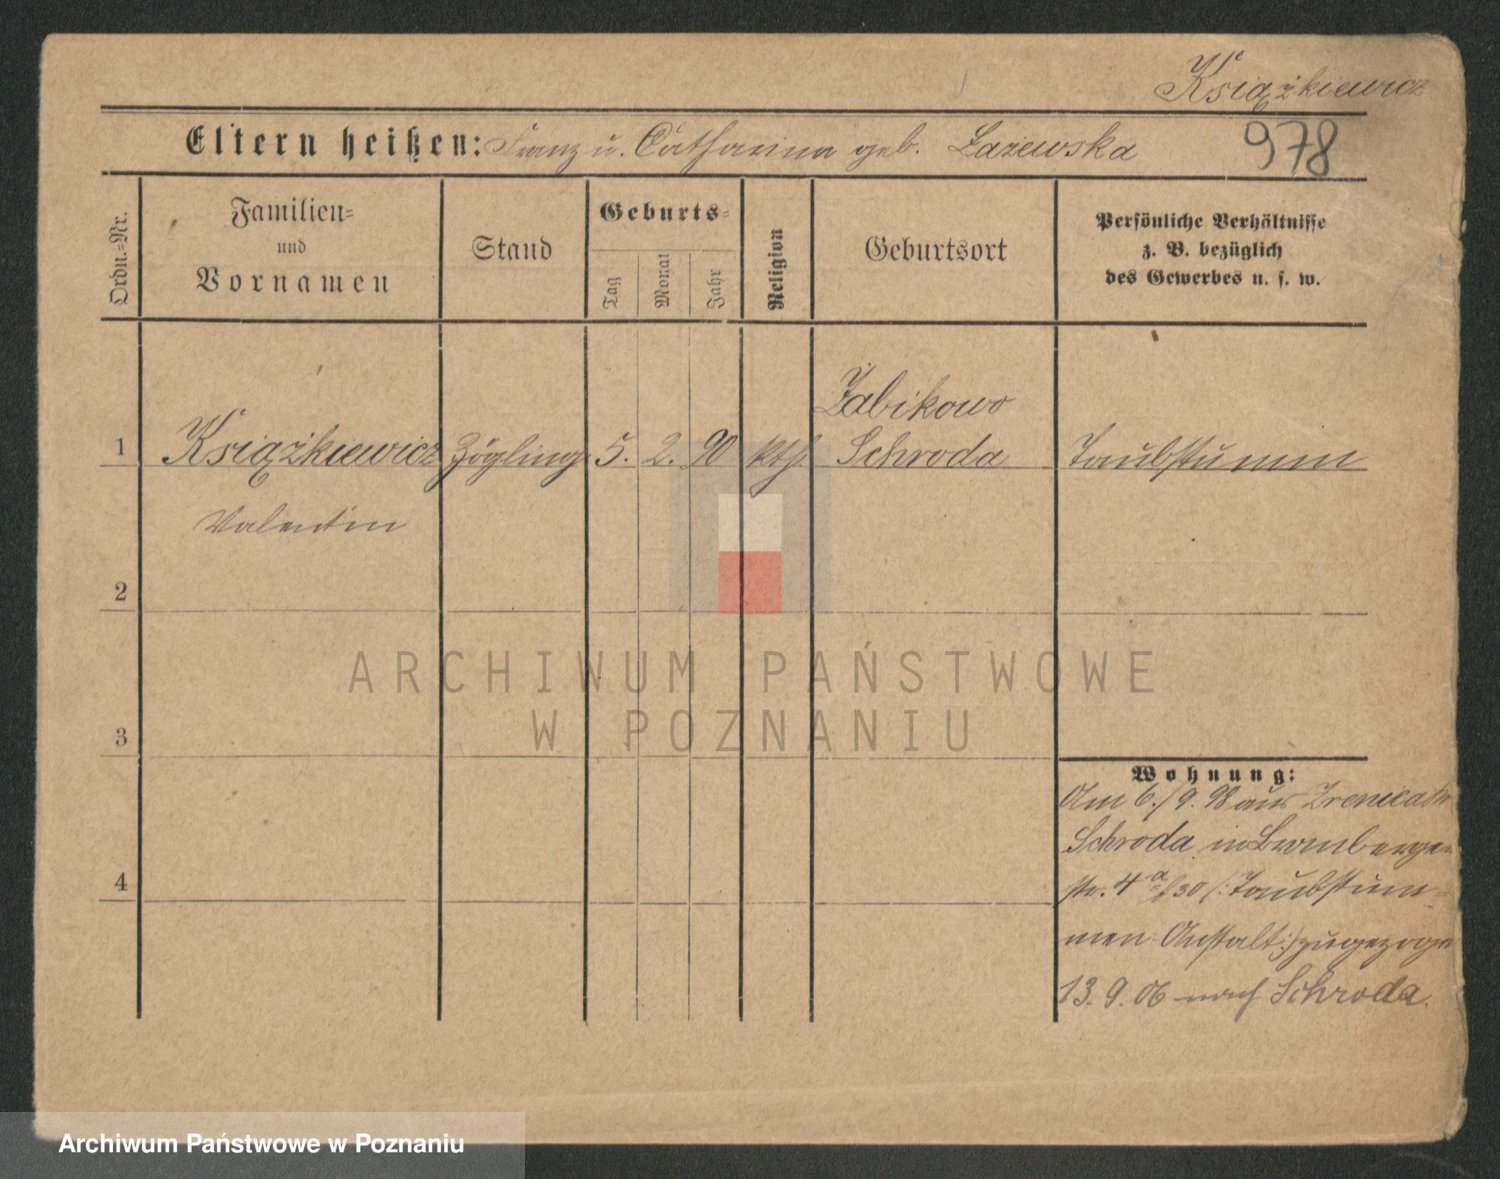 Książkiewicz
Eltern heißen: Franz u. Catharina geb. Łazewska
978
Ordn.-Nr.
Familien-
und
Vornamen
Stand
Geburts-
Tag
Monat
Jahr
Religion
Geburtsort
Persönliche Verhältnisse
z. B. bezüglich
des Gewerbes u. s. w.
Żabikowo
1 Książkiewicz Zögling 5. 2. 90 kth. Schroda Taubstumm
Valentin
2
3
4
Wohnung:
Am 6./9. 98 aus
Schroda in Bromberger
str. 4 a /:Taubstum-
men Anstalt:/ zugezogen
13. 9. 06 nach Schroda.
ARCHIWUM PAŃSTWOWE
W POZNANIU
Archiwum Państwowe w Poznaniu